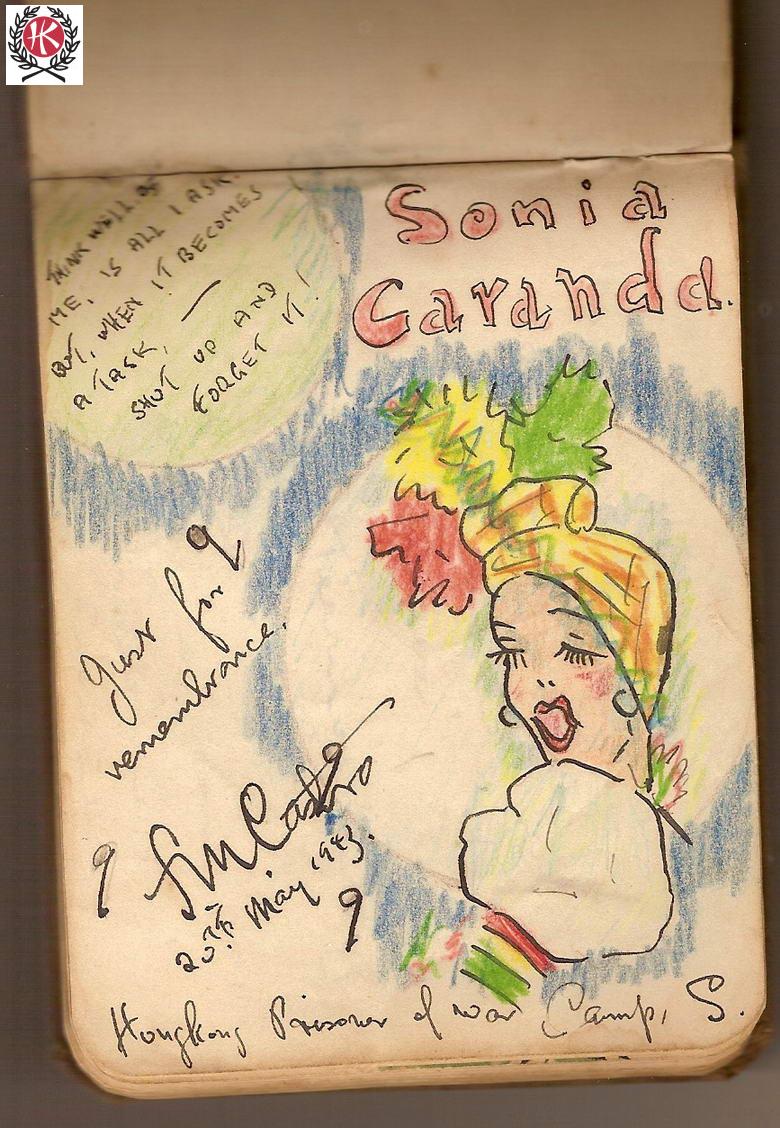 HK
Sonia
Caranda.
THINK WELL OF
ME, IS ALL I ASK.
BUT, WHEN IT BECOMES
A TASK, —
SHUT UP AND
FORGET IT!
Just for
remembrance.
20TH May 1943.
Hongkong Prisoner of war Camp, S.